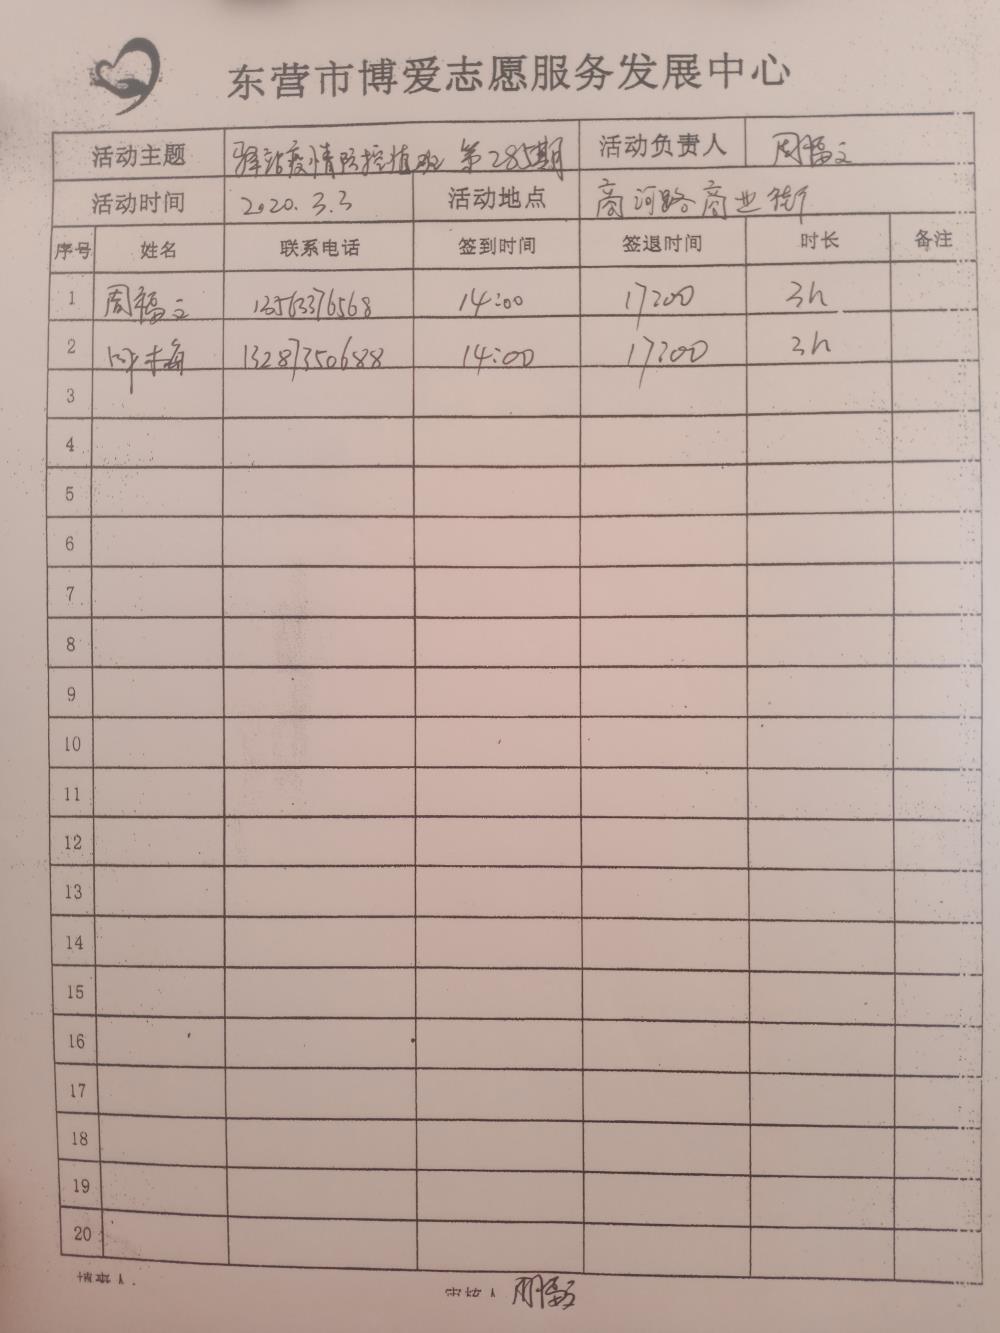 东营市博爱志愿服务发展中心
活动主题 驿站疫情防控值班 第285期 活动负责人 周福文
活动时间 2020.3.3 活动地点 商河路商业街
序号 姓名 联系电话 签到时间 签退时间 时长 备注
1 周福文 13563376568 14:00 17:00 3h
2 13287350688 14:00 17:00 3h
3
4
5
6
7
8
9
10
11
12
13
14
15
16
17
18
19
20
填表人: 审核人 周福文